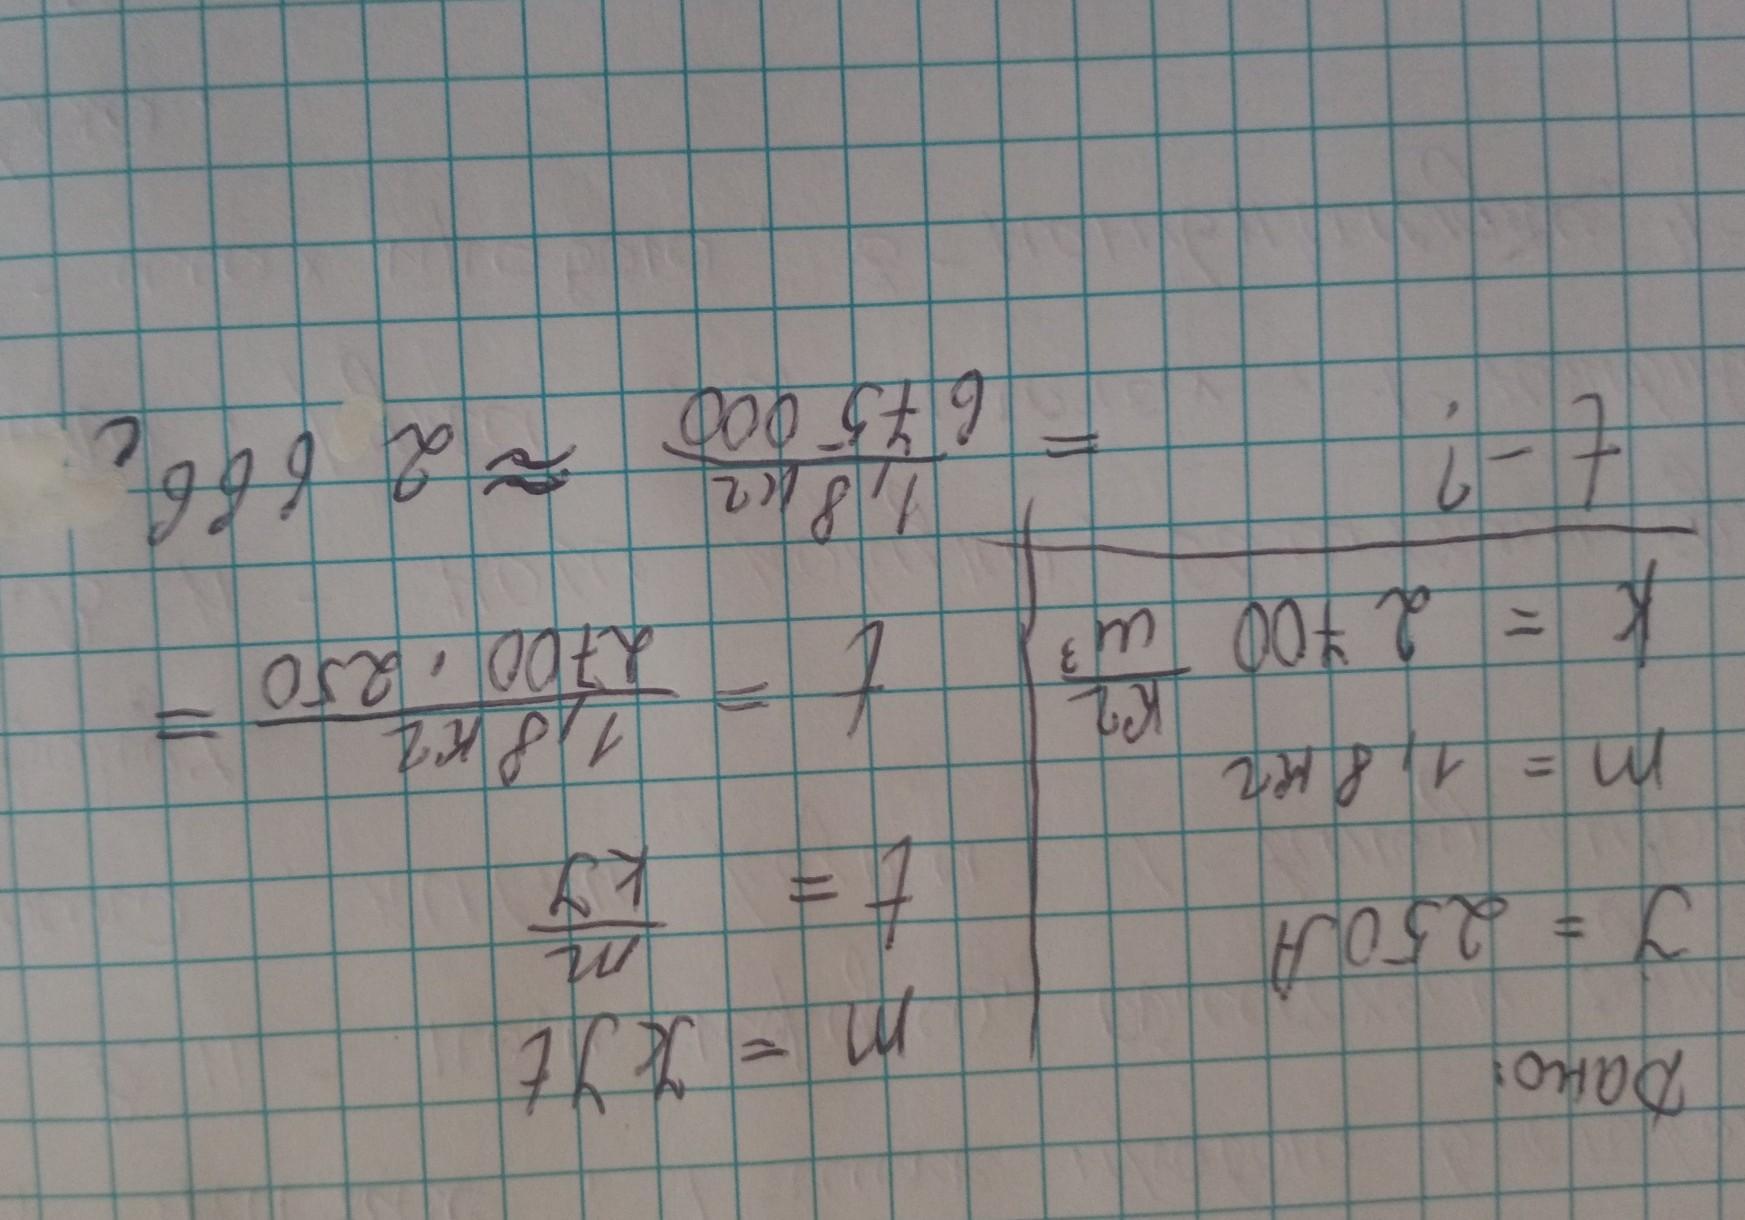 Дано:
J = 250 А
m = 1,8 кг
k = 2 700 кг/м³
t - ?
m = kJt
t = m/kJ
t = 1,8 кг/2700 · 250 =
= 1,8 кг/675 000 ≈ 2 666 с